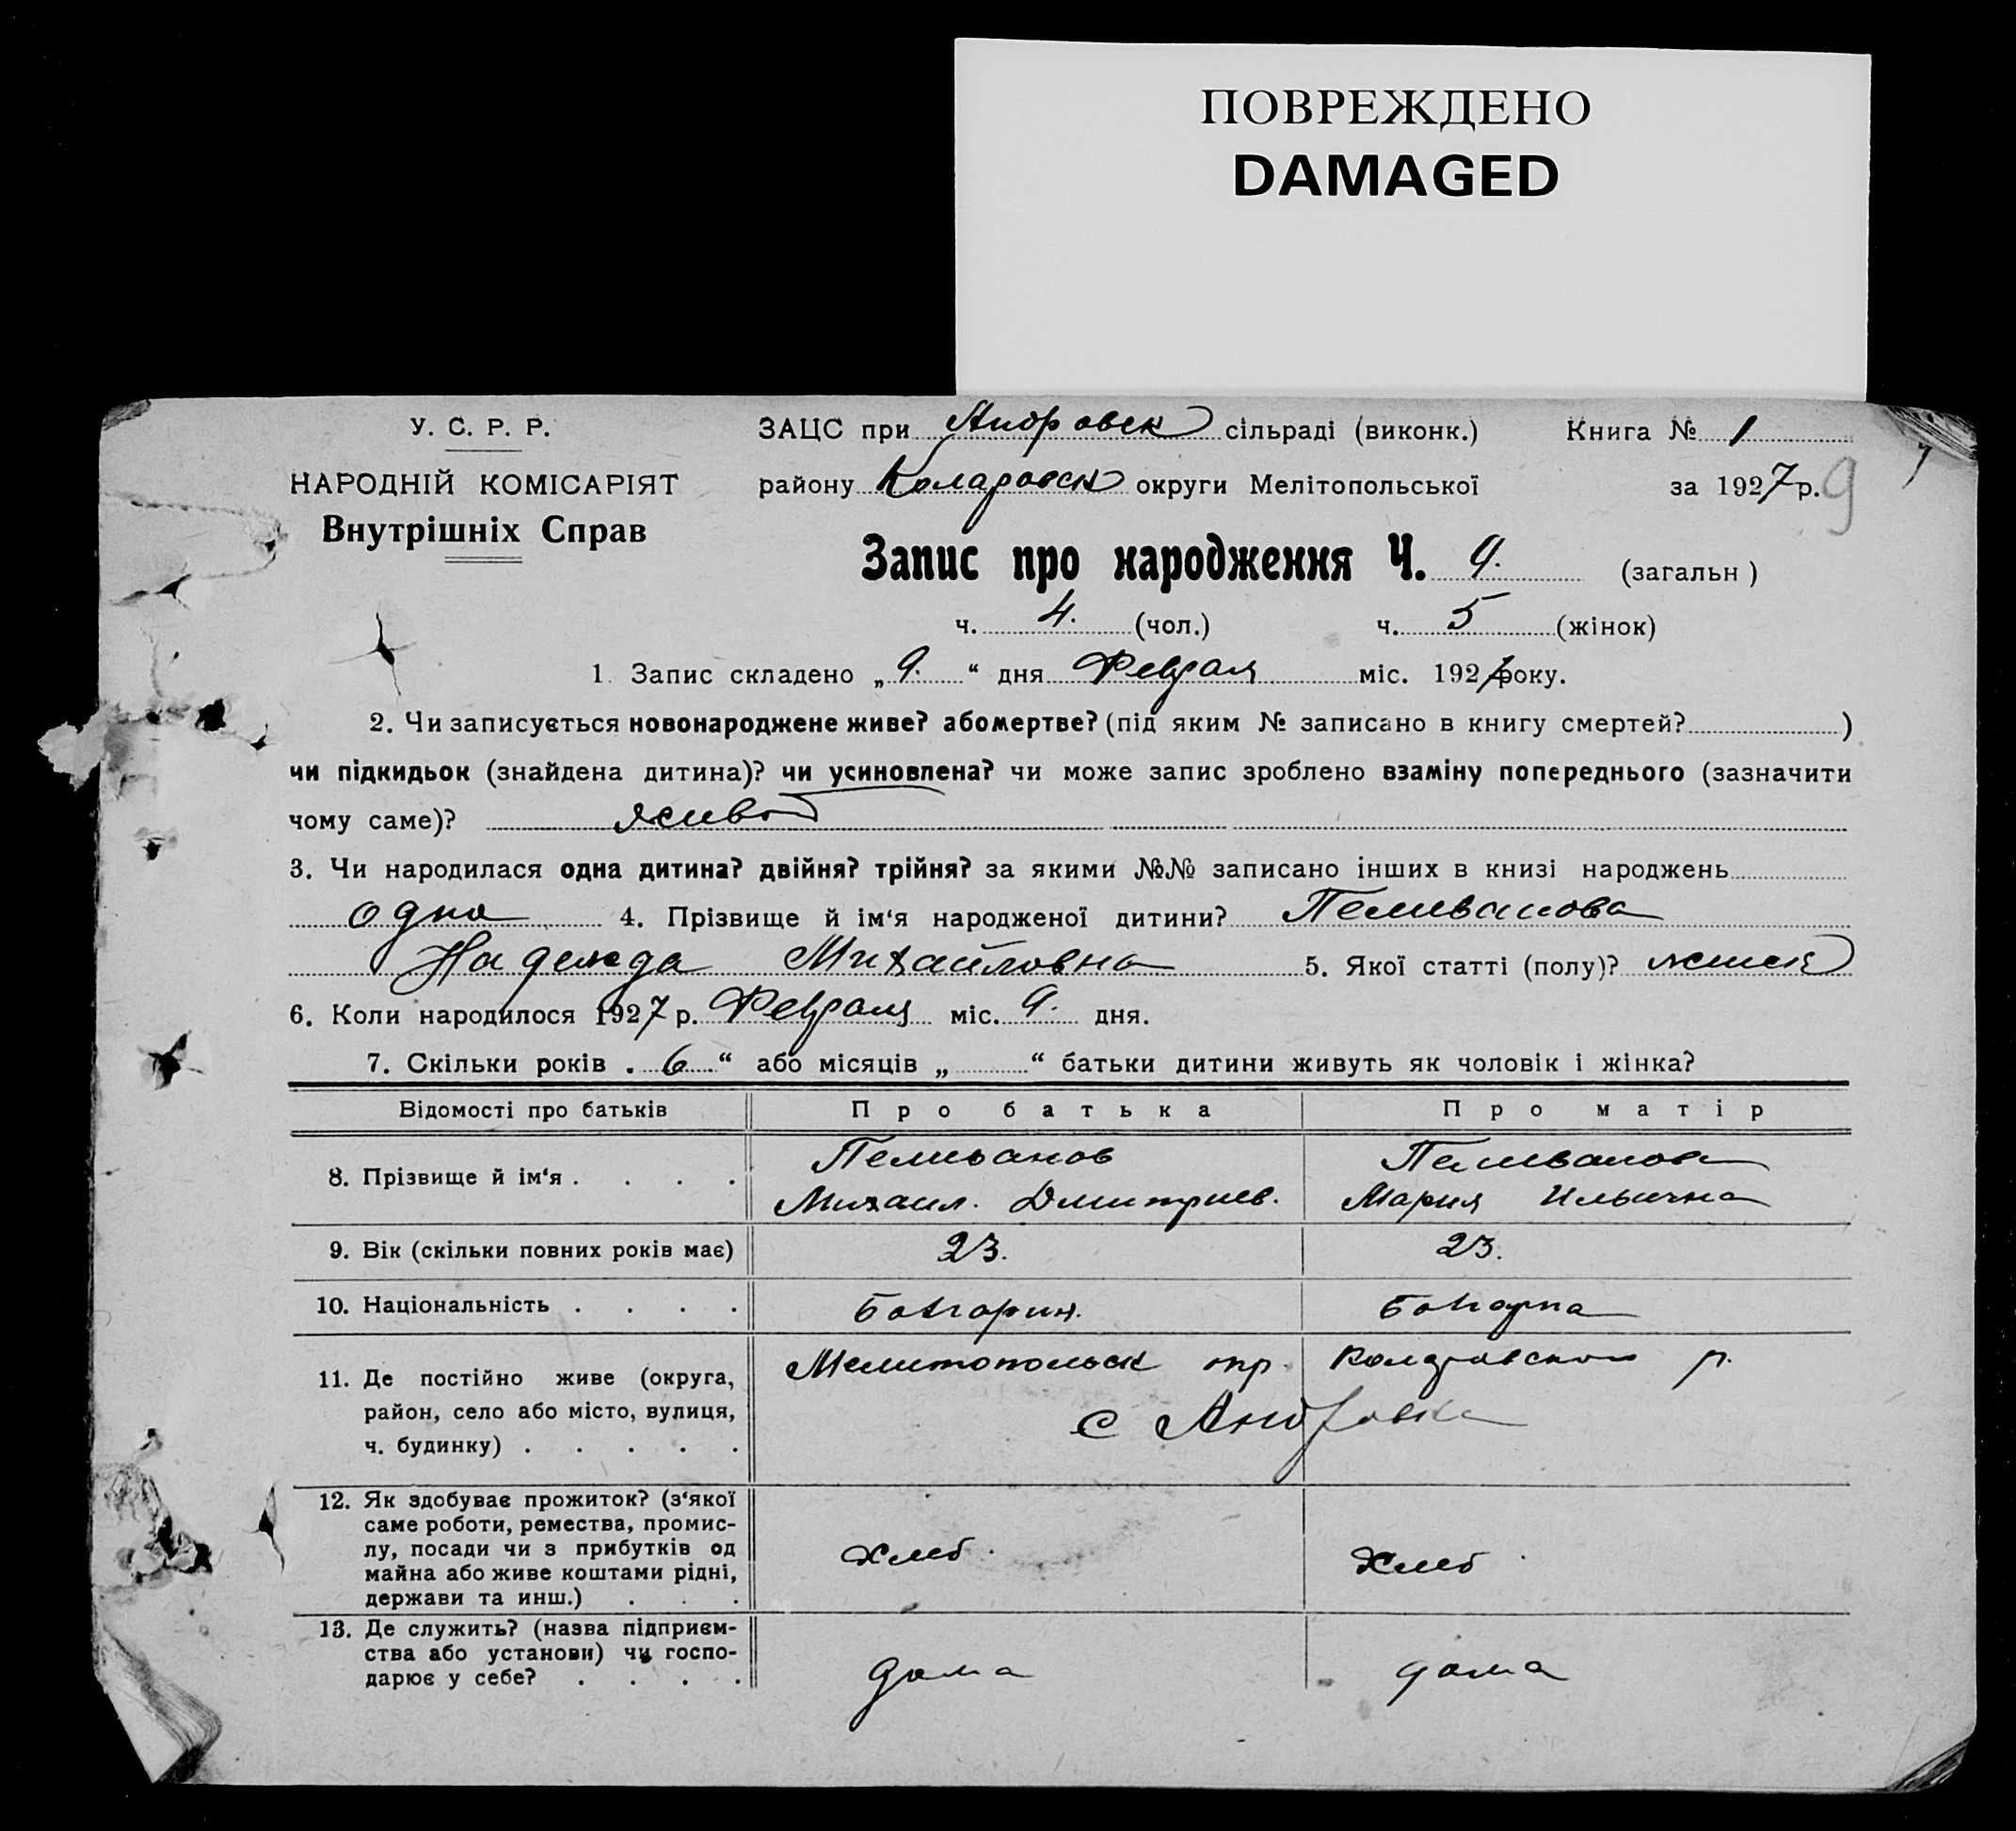 ПОВРЕЖДЕНО
DAMAGED
У. С. Р. Р.
НАРОДНІЙ КОМІСАРІЯТ
Внутрішніх Справ
ЗАЦС при Андровск сільраді (виконк.) Книга № 1
району Коларовск округи Мелітопольської за 1927 р. 9
Запис про народження Ч. 9. (загальн )
ч. 4. (чол.) ч. 5 (жінок)
1. Запис складено „ 9. “ дня Февраля міс. 1927 року.
2. Чи записується новонароджене живе? або мертве? (під яким № записано в книгу смертей? )
чи підкидьок (знайдена дитина)? чи усиновлена? чи може запис зроблено взаміну попереднього (зазначити
чому саме)? живой
3. Чи народилася одна дитина? двійня? трійня? за якими №№ записано інших в книзі народжень
одна 4. Прізвище й ім‘я народженої дитини? Пеливанова
Надежда Михайловна 5. Якої статті (полу)? женск
6. Коли народилося 1927 р. Февраля міс. 9. дня.
7. Скільки років „ 6 “ або місяців „ “ батьки дитини живуть як чоловік і жінка?
Відомості про батьків Про батька Про матір
8. Прізвище й ім‘я . . . . Пеливанов Пеливанова
Михаил. Дмитриев. Мария Ильична
9. Вік (скільки повних років має) 23. 23.
10. Національність . . . . Болгарин. Болгарка
11. Де постійно живе (округа, район, село або місто, вулиця, ч. будинку) . . . . . Мелитопольск окр. Коларовского р.
с Андровка
12. Як здобуває прожиток? (з‘якої
саме роботи, ремества, промис-
лу, посади чи з прибутків од
майна або живе коштами рідні,
держави та инш.) . . . Хлеб. Хлеб.
13. Де служить? (назва підприєм-
ства або установи) чи госпо-
дарює у себе? . . . . дома дома